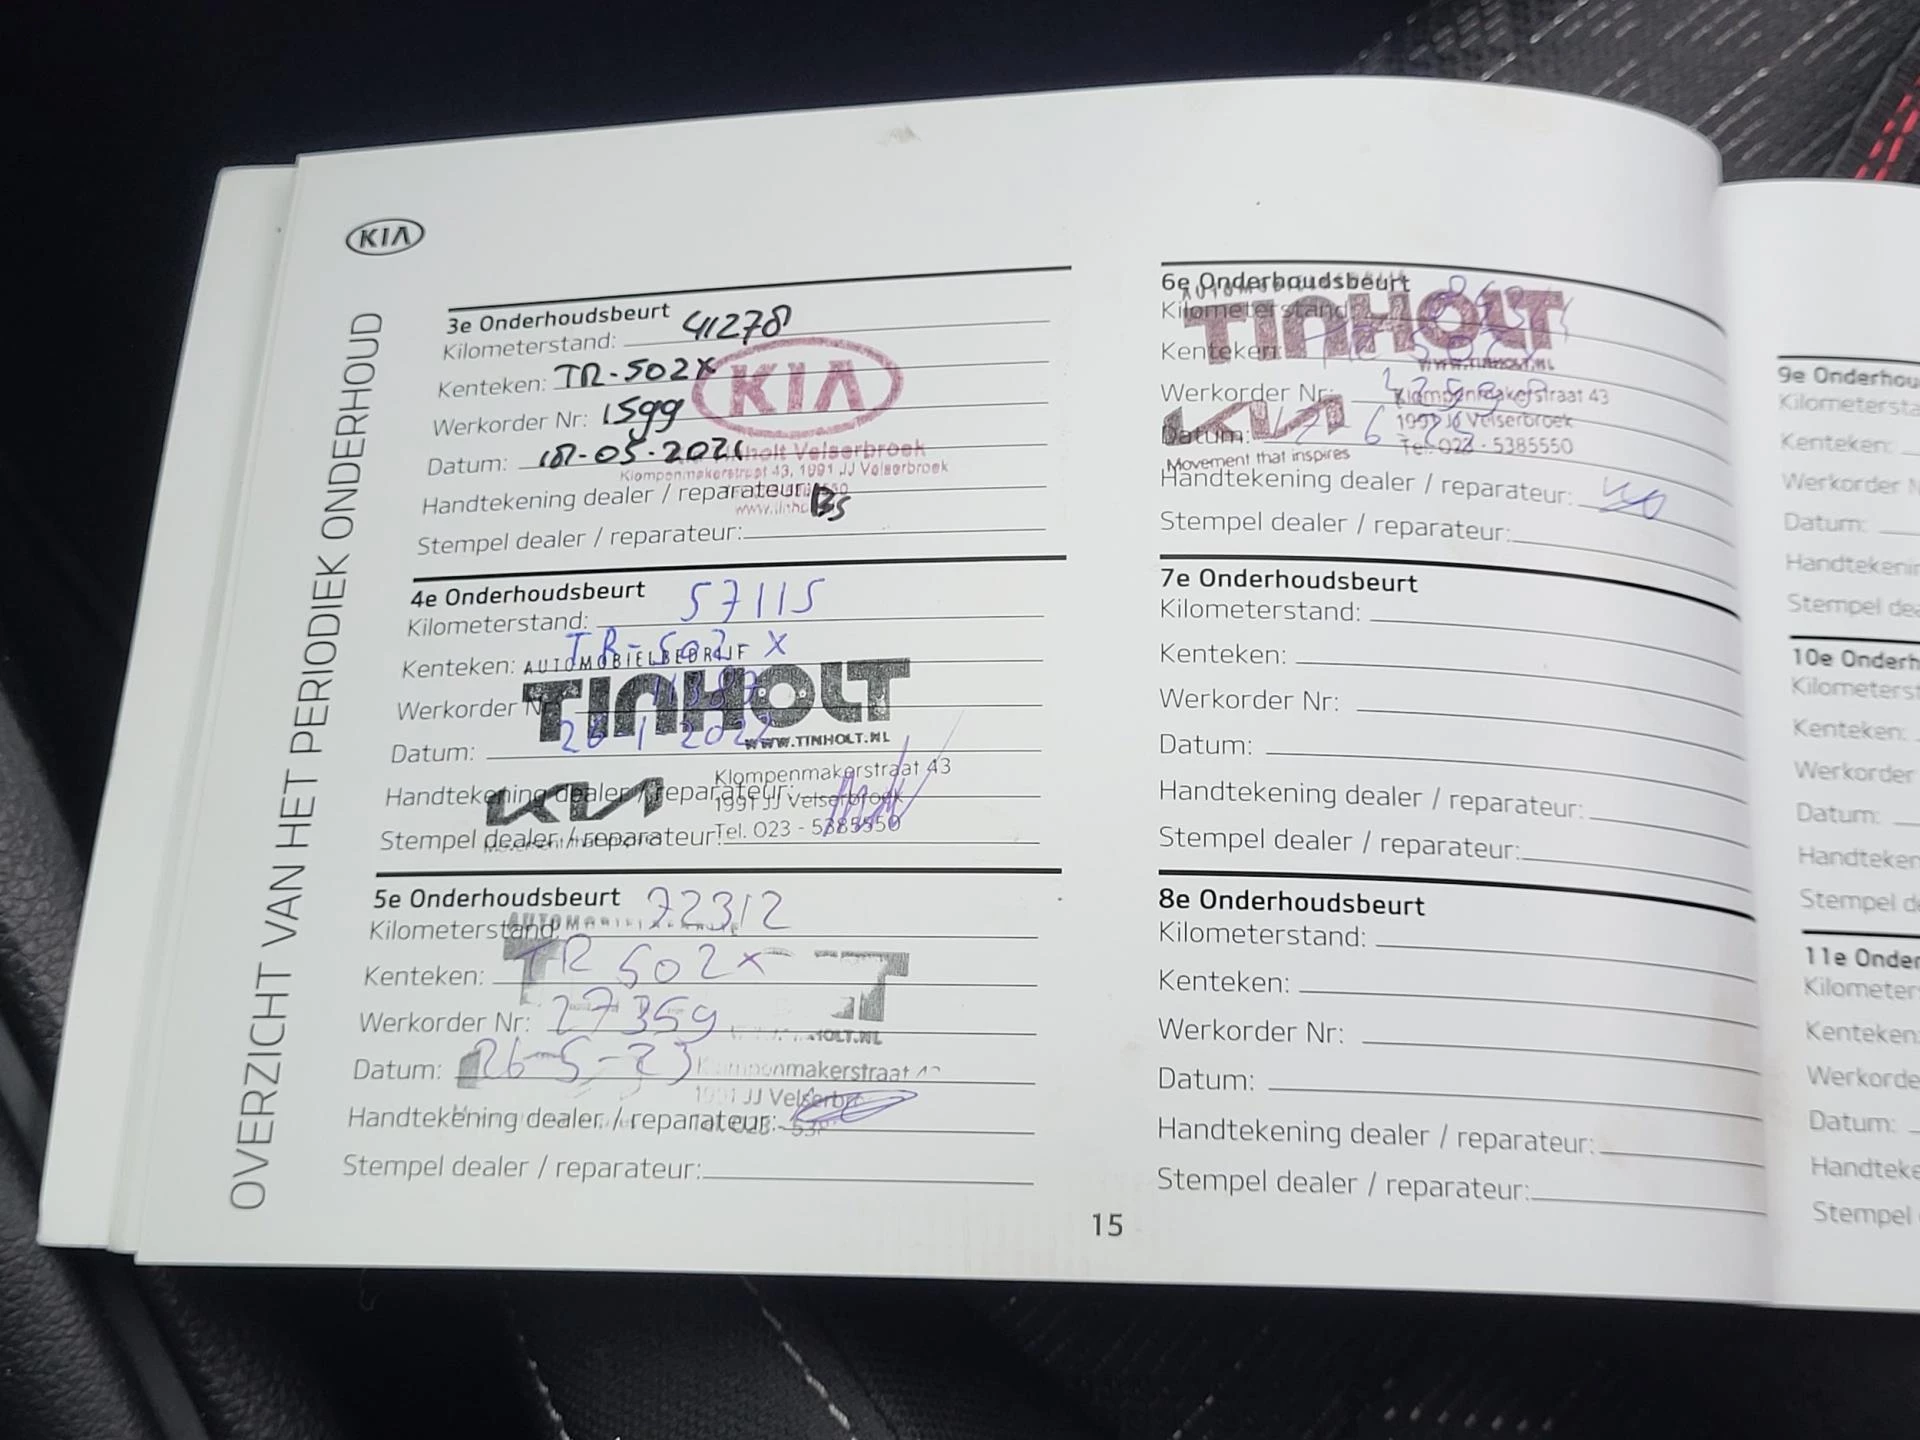 KIA
OVERZICHT VAN HET PERIODIEK ONDERHOUD
3e Onderhoudsbeurt
Kilometerstand: 41278
Kenteken: TR-502X
KIA
Werkorder Nr: 1599
Datum: 18-05-2021
Tinholt Velserbroek
Klompenmakerstraat 43, 1991 JJ Velserbroek
Handtekening dealer / reparateur: BS
Stempel dealer / reparateur:
4e Onderhoudsbeurt
Kilometerstand: 57115
Kenteken: TR-502 X
AUTOMOBIELBEDRIJF
TINHOLT
Werkorder Nr: 11387
Datum: 26-1-2022
WWW.TINHOLT.NL
Klompenmakerstraat 43
Handtekening dealer / reparateur:
KIA
1991 JJ Velserbroek
Stempel dealer / reparateur:
Tel. 023 - 5385550
Movement that inspires
5e Onderhoudsbeurt
Kilometerstand: 72312
Kenteken: TR 502X
Werkorder Nr: 27359
Datum: 26-5-23
Klompenmakerstraat
1991 JJ
Handtekening dealer / reparateur:
Stempel dealer / reparateur:
6e Onderhoudsbeurt
Kilometerstand:
TINHOLT
Kenteken:
WWW.TINHOLT.NL
Werkorder Nr:
Klompenmakerstraat 43
KIA
1991 JJ Velserbroek
Datum:
Tel. 023 - 5385550
Movement that inspires
Handtekening dealer / reparateur:
Stempel dealer / reparateur:
7e Onderhoudsbeurt
Kilometerstand:
Kenteken:
Werkorder Nr:
Datum:
Handtekening dealer / reparateur:
Stempel dealer / reparateur:
8e Onderhoudsbeurt
Kilometerstand:
Kenteken:
Werkorder Nr:
Datum:
Handtekening dealer / reparateur:
Stempel dealer / reparateur:
15
9e Onderhou
Kilometersta
Kenteken:
Werkorder N
Datum:
Handtekenin
Stempel dea
10e Onderh
Kilometerst
Kenteken:
Werkorder
Datum:
Handteken
Stempel d
11e Onder
Kilometer
Kenteken:
Werkorde
Datum:
Handteke
Stempel